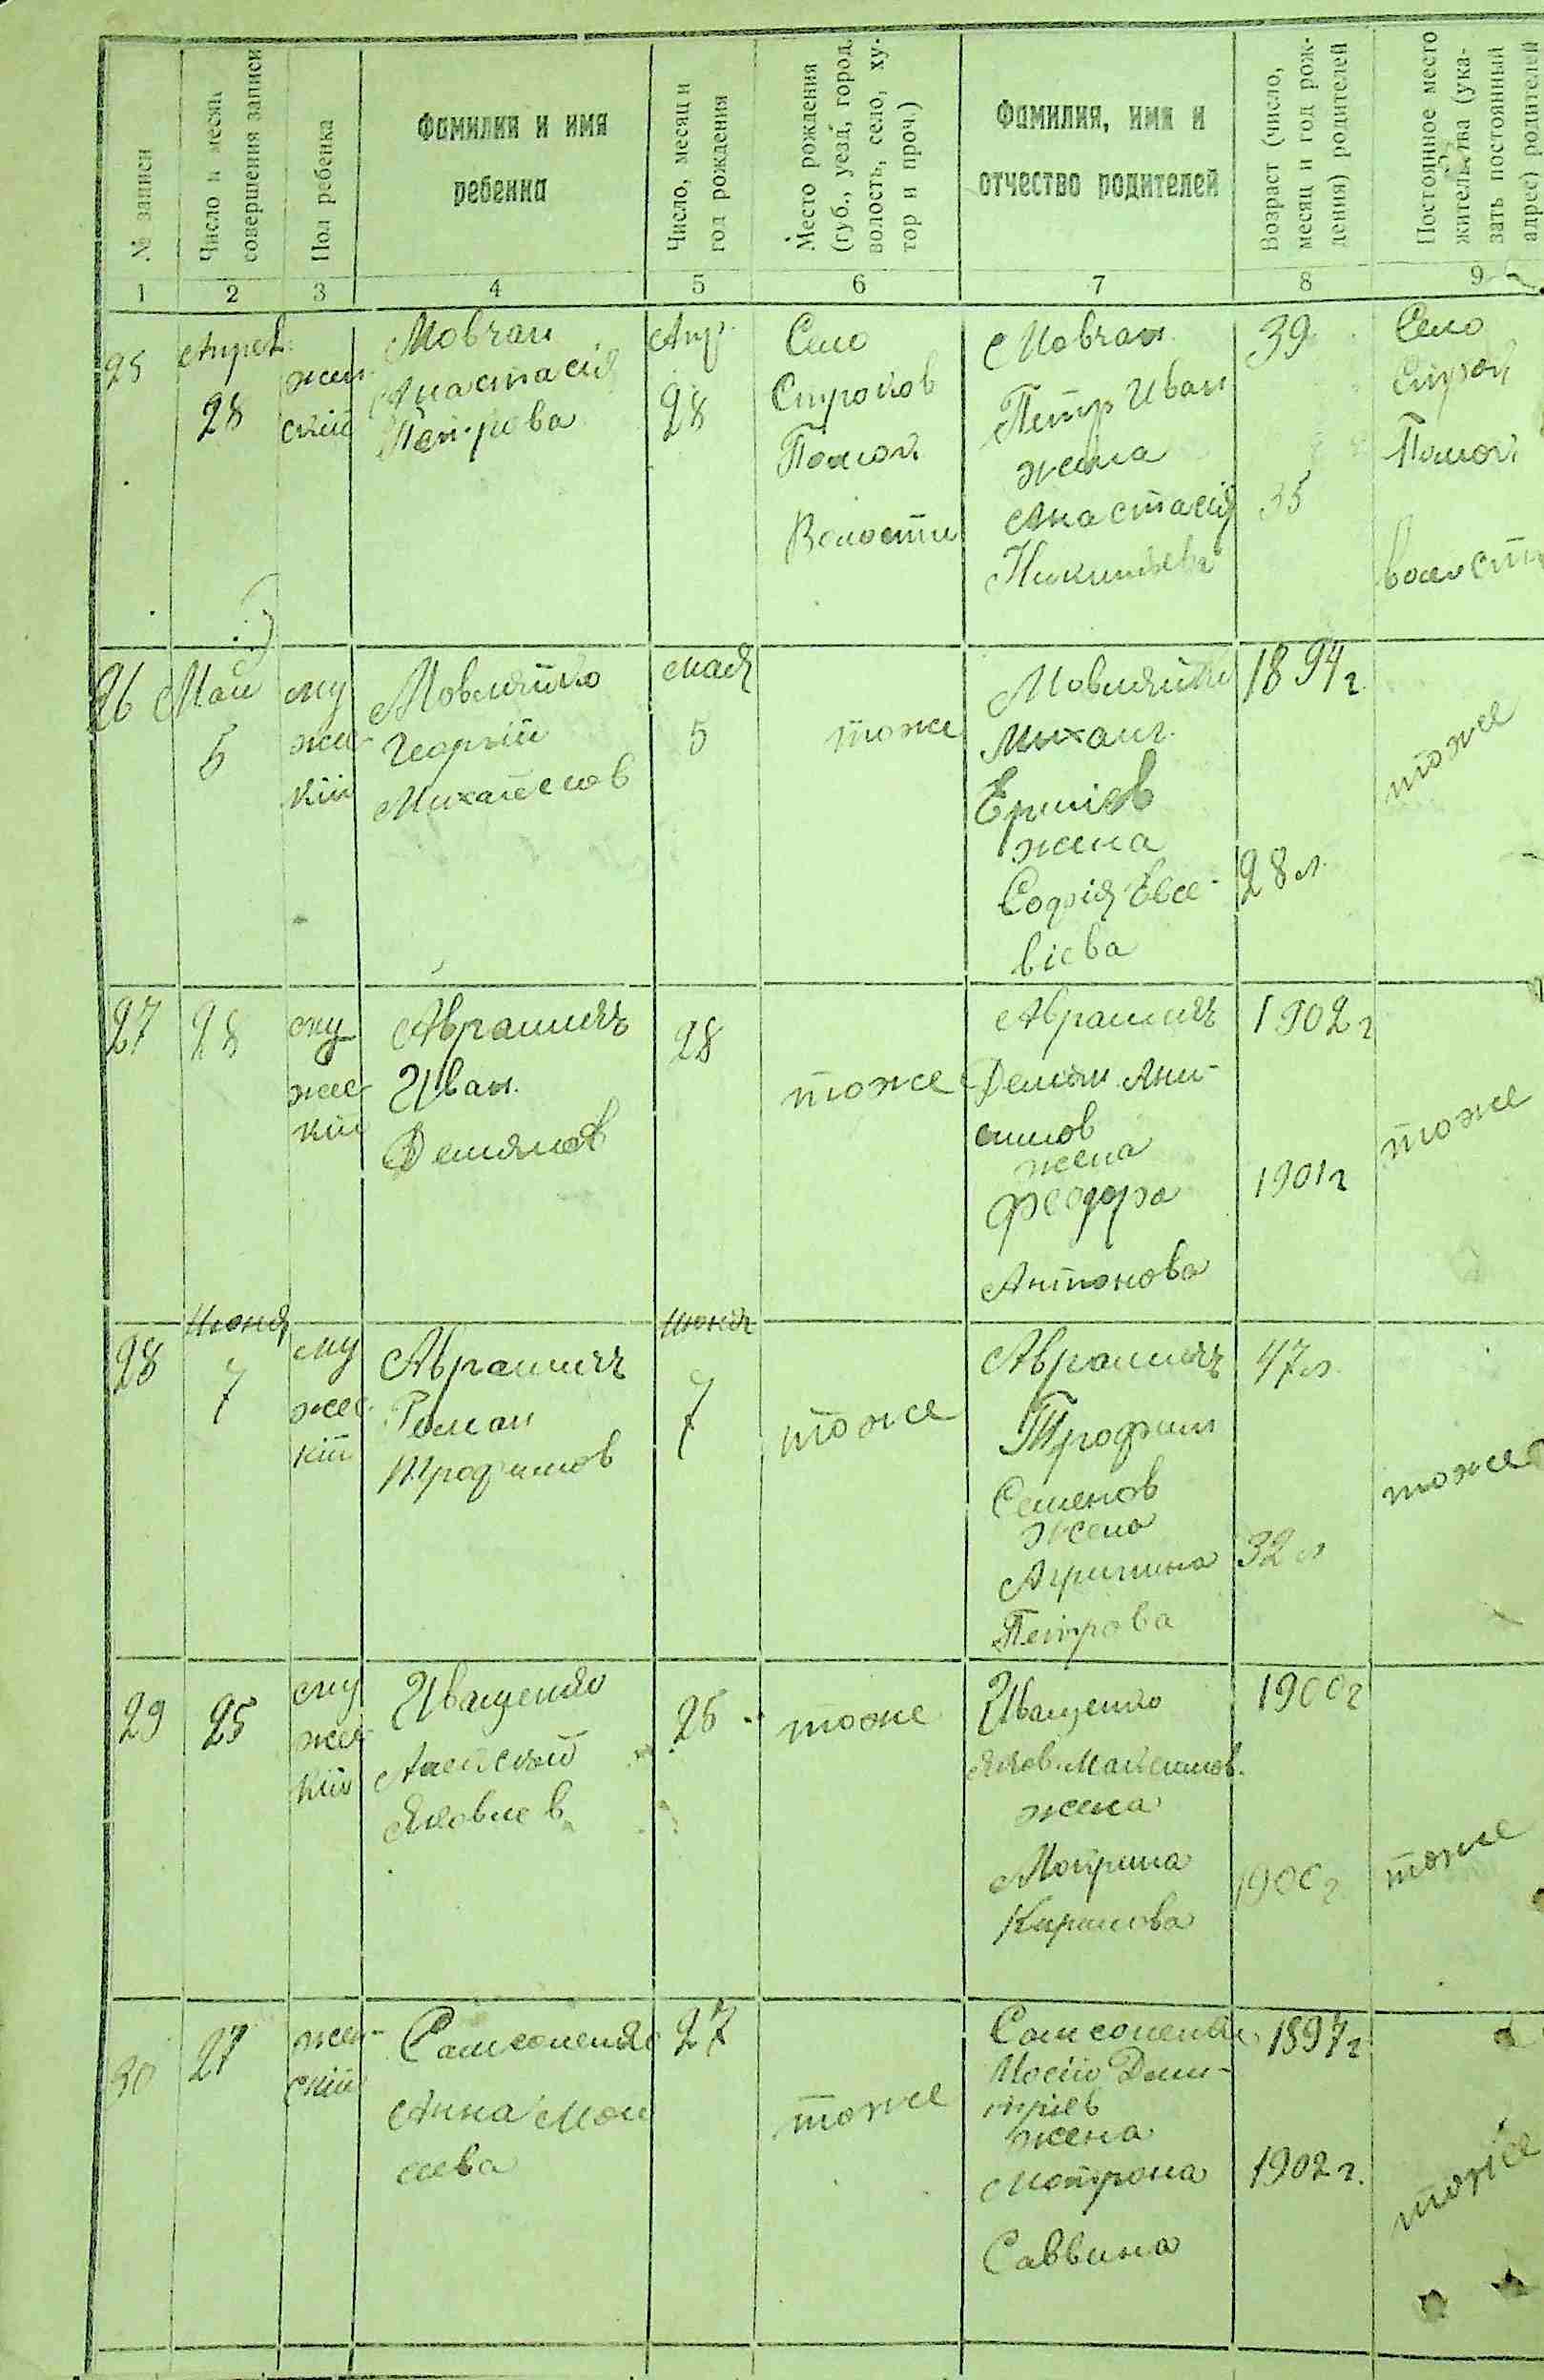 № записи
Число и месяц
совершения записи
Пол ребенка
Фамилия и имя
ребенка
Число, месяц и
год рождения
Место рождения
(губ., уезд, город,
волость, село, ху-
тор и проч.)
Фамилия, имя и
отчество родителей
Возраст (число,
месяц и год рож-
дения) родителей
Постоянное место
жительства (ука-
зать постоянный
адрес) родителей
1
2
3
4
5
6
7
8
9
25
Апрел.
28
жен-
скій
Мовчан
Анастасія
Петрова
Апр.
28
Село
Строков
Волости
Мовчан
Петр Иван
жена
Анастасія
39
35
Село
Строк
волости
26
Май
5
му
жес-
кій
Георгій
Михайлов
мая
5
тоже
Михаил
жена
Софія Евсе-
віева
1894 г.
28 л.
тоже
27
28
му
жес-
кій
Аврамич
Иван
Демянов
28
тоже
Аврамич
Демян Ани-
симов
жена
Феодора
Антонова
1902 г
1901 г
тоже
28
Июня
7
му
жес-
кій
Аврамич
Роман
Трофимов
Июня
7
тоже
Аврамич
Трофим
Семенов
жена
Агрипина
Петрова
47 л.
32 л
тоже
29
25
му
жес-
кій
Иващенко
Алексей
Яковлев
25
тоже
Иващенко
Яков. Максимов.
жена
Мотрина
Кирилова
1900 г
1900 г
тоже
30
27
жен-
скій
Самсоненко
Анна Мои
сеева
27
тоже
Самсоненко
Мосій Дми-
тріев
жена
Мотрона
Саввина
1897 г
1902 г.
тоже